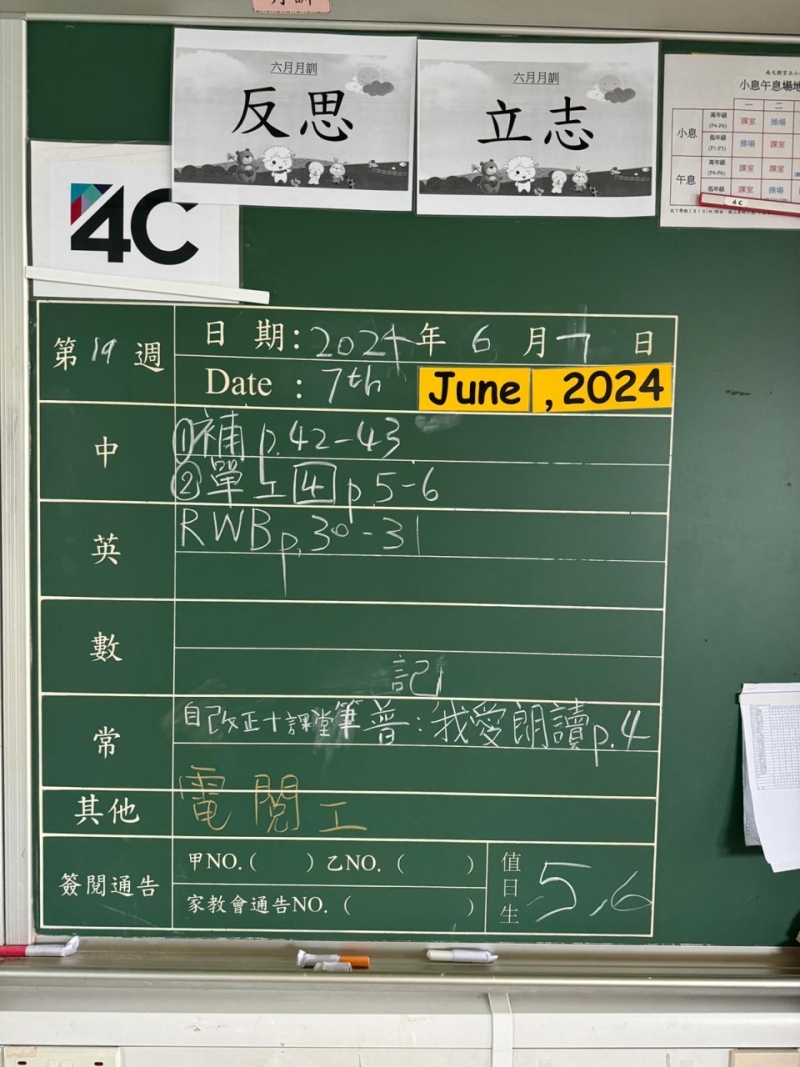 六月月訓
反思
六月月訓
立志
小息午息場地
一 二
小息
高年級 (P4-P6) 課室 操場
低年級 (P1-P3) 操場 課室
午息
高年級 (P4-P6) 課室 課室
低年級 課室 操場
4C
4C
第19週
日期: 2024年6月7日
Date : 7th June , 2024
中
①補 p.42-43
②單工4 p.5-6
英
RWB p.30-31
數
記
常
自己改正+課堂筆 普:我愛朗讀p.4
其他
電閱工
簽閱通告
甲NO.( ) 乙NO. ( )
家教會通告NO. ( )
值日生
5,6